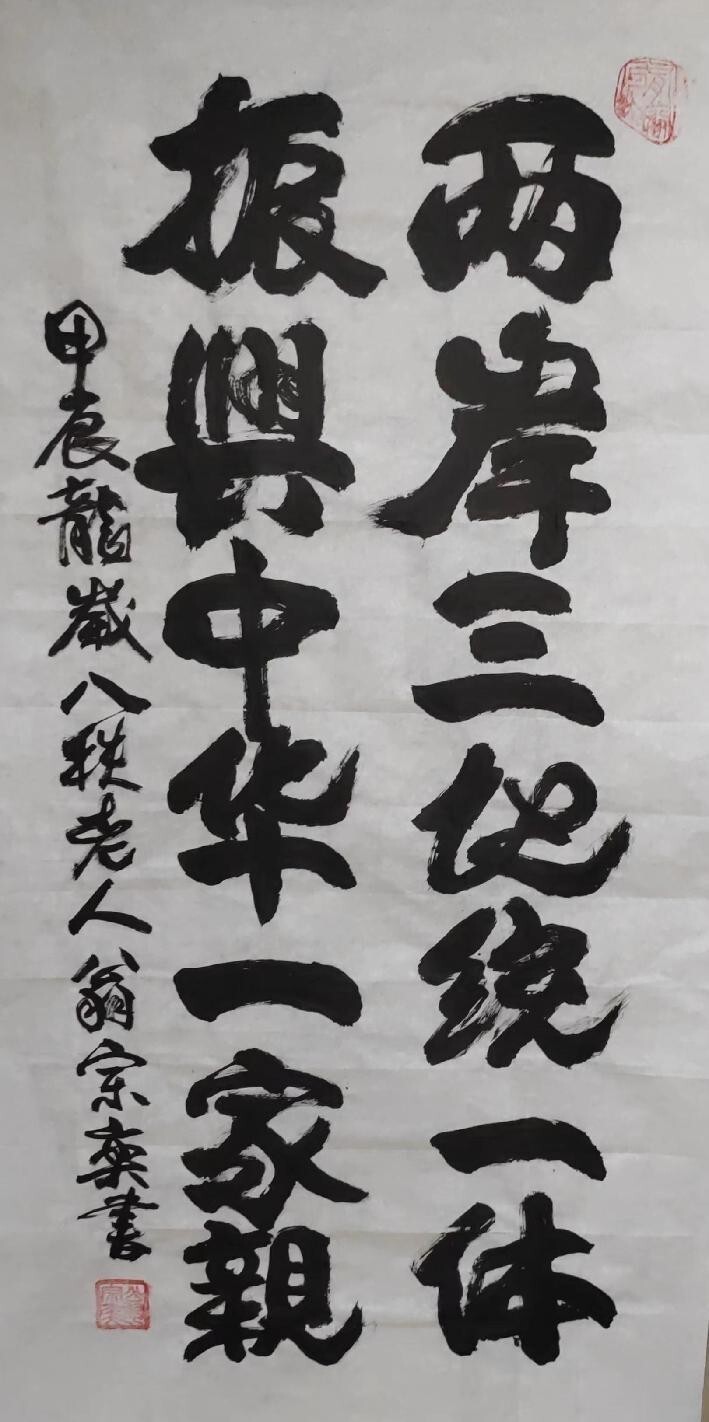 两岸三地统一体
振興中华一家親
甲辰龍歲八秩老人翁宗奕書